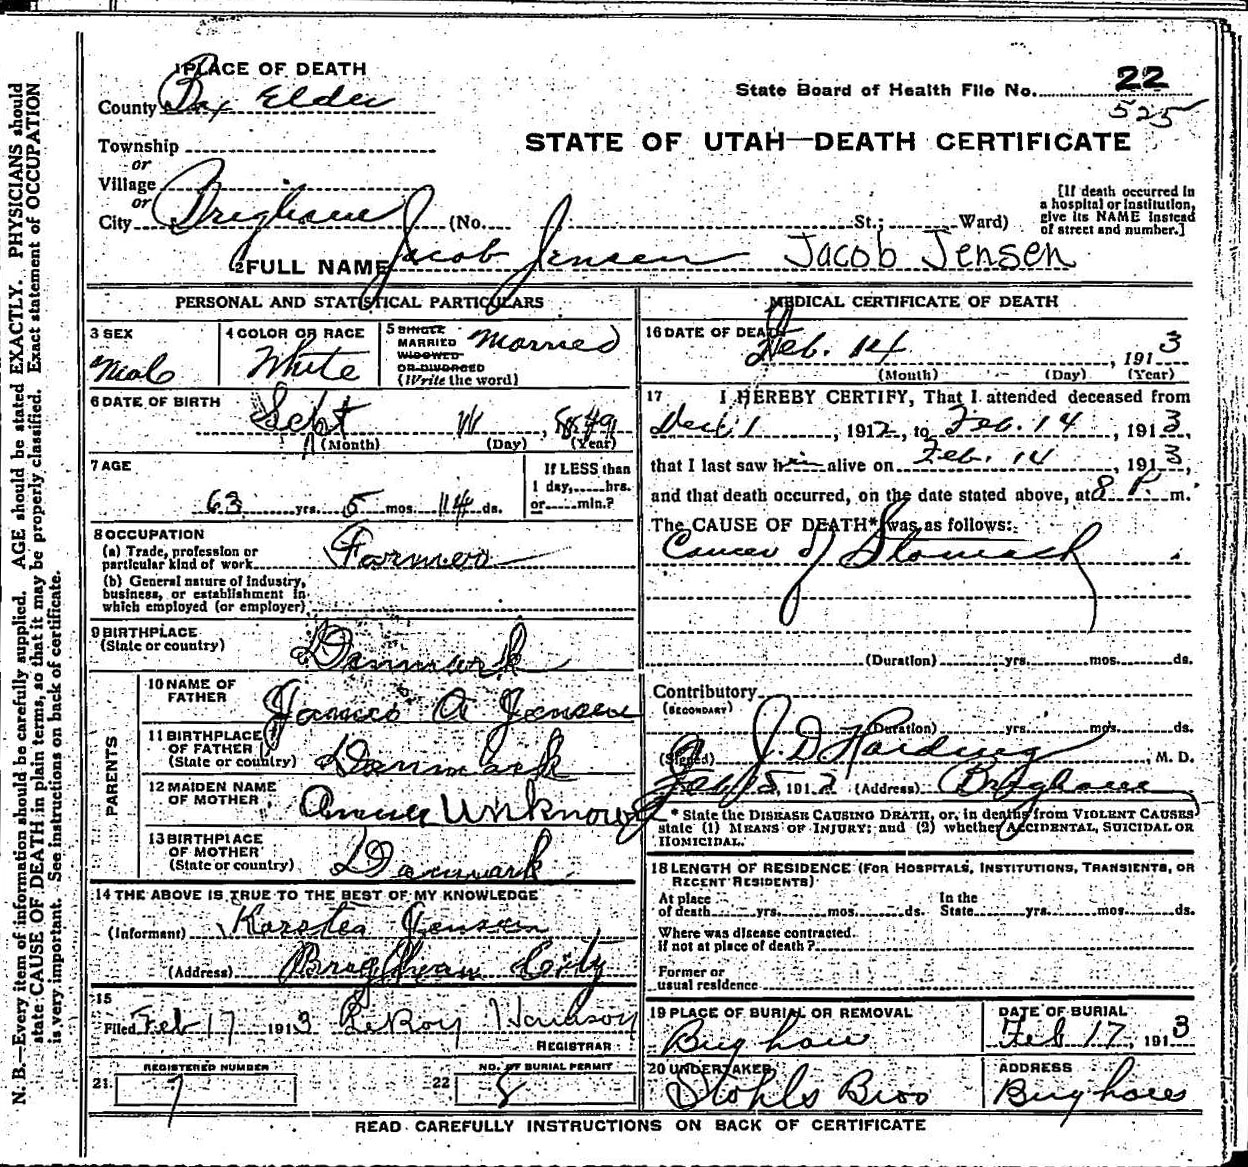 1 PLACE OF DEATH
County Box Elder
State Board of Health File No. 22
525
STATE OF UTAH—DEATH CERTIFICATE
Township
or
Village
or
City Brigham (No. St.; Ward)
[If death occurred in
a hospital or institution,
give its NAME instead
of street and number.]
2 FULL NAME Jacob Jensen Jacob Jensen
PERSONAL AND STATISTICAL PARTICULARS
3 SEX
Male
4 COLOR OR RACE
White
5 SINGLE
MARRIED
WIDOWED
OR DIVORCED
(Write the word)
Married
6 DATE OF BIRTH
Sept 11, 1849
(Month) (Day) (Year)
7 AGE
63 yrs. 5 mos. 14 ds.
If LESS than
1 day, hrs.
or min.?
8 OCCUPATION
(a) Trade, profession or
particular kind of work Farmer
(b) General nature of industry,
business, or establishment in
which employed (or employer)
9 BIRTHPLACE
(State or country)
Denmark
PARENTS
10 NAME OF
FATHER
James A Jensen
11 BIRTHPLACE
OF FATHER
(State or country) Danmark
12 MAIDEN NAME
OF MOTHER Unknown
13 BIRTHPLACE
OF MOTHER
(State or country) Danmark
14 THE ABOVE IS TRUE TO THE BEST OF MY KNOWLEDGE
(Informant) Jensen
(Address) Brigham City
15
Filed Feb 17 1913 LeRoy
REGISTRAR
21 REGISTERED NUMBER
7
22 NO. OF BURIAL PERMIT
8
MEDICAL CERTIFICATE OF DEATH
16 DATE OF DEATH
Feb. 14, 1913
(Month) (Day) (Year)
17 I HEREBY CERTIFY, That I attended deceased from
Dec. 1, 1912, to Feb. 14, 1913,
that I last saw him alive on Feb. 14, 1913,
and that death occurred, on the date stated above, at 8 P. m.
The CAUSE OF DEATH* was as follows:
Cancer of Stomach
(Duration) yrs. mos. ds.
Contributory
(SECONDARY)
(Duration) yrs. mos. ds.
(Signed) J. D. Harding, M. D.
Feb 15, 191 (Address) Brigham
* State the DISEASE CAUSING DEATH, or, in deaths from VIOLENT CAUSES
state (1) MEANS OF INJURY; and (2) whether ACCIDENTAL, SUICIDAL OR
HOMICIDAL.
18 LENGTH OF RESIDENCE (FOR HOSPITALS, INSTITUTIONS, TRANSIENTS, OR
RECENT RESIDENTS)
At place
of death yrs. mos. ds.
In the
State yrs. mos. ds.
Where was disease contracted
if not at place of death?
Former or
usual residence
19 PLACE OF BURIAL OR REMOVAL
Brigham
DATE OF BURIAL
Feb 17, 1913
20 UNDERTAKER
Stohls Bros
ADDRESS
Brigham
READ CAREFULLY INSTRUCTIONS ON BACK OF CERTIFICATE
N. B.—Every item of information should be carefully supplied. AGE should be stated EXACTLY. PHYSICIANS should
state CAUSE OF DEATH in plain terms, so that it may be properly classified. Exact statement of OCCUPATION
is very important. See instructions on back of certificate.